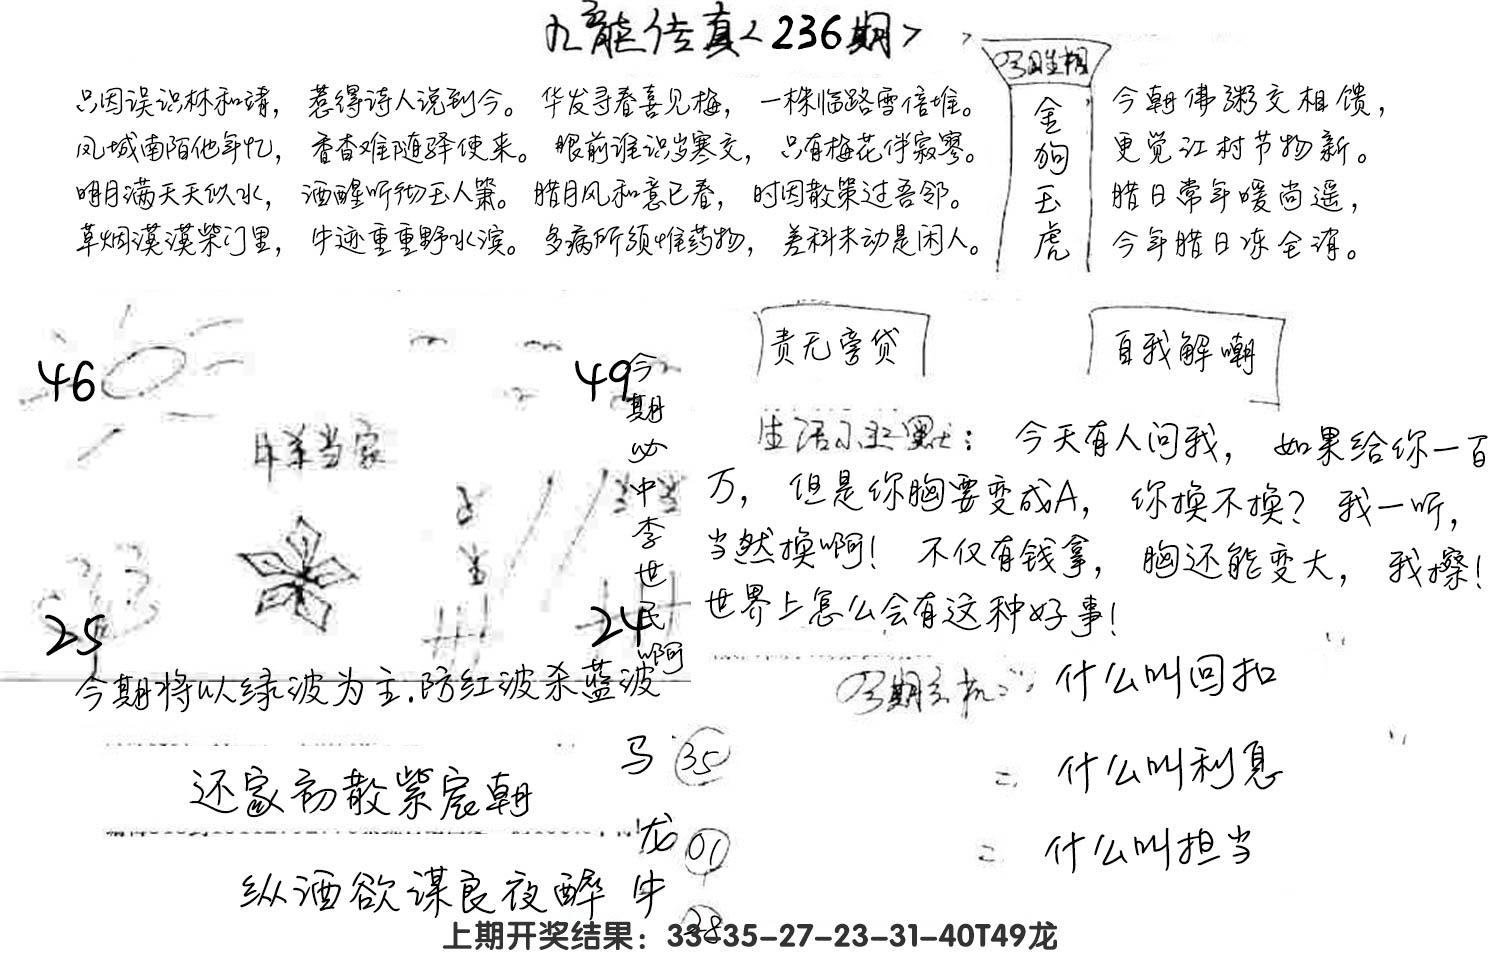 九龙传真<236期>
今期生相
金狗玉虎
只因误识林和靖，惹得诗人说到今。华发寻春喜见梅，一株临路雪倍堆。
凤城南陌他年忆，香杳难随驿使来。眼前谁识岁寒交，只有梅花伴寂寥。
明月满天天似水，酒醒听彻玉人箫。腊月风和意已春，时因散策过吾邻。
草烟漠漠柴门里，牛迹重重野水滨。多病所须惟药物，差科未动是闲人。
今朝佛粥交相馈，
更觉江村节物新。
腊日常年暖尚遥，
今年腊日冻全消。
46
49
羊当家
25
24
今期必中李世民啊
今期将以绿波为主.防红波杀蓝波
责无旁贷
自我解嘲
生活小幽默：今天有人问我，如果给你一百
万，但是你胸要变成A，你换不换？我一听，
当然换啊！不仅有钱拿，胸还能变大，我擦！
世界上怎么会有这种好事！
今期玄机：什么叫回扣
二 什么叫利息
二 什么叫担当
还家初散紫宸朝
纵酒欲谋良夜醉
马 35
龙 01
牛 28
上期开奖结果：33-35-27-23-31-40T49龙